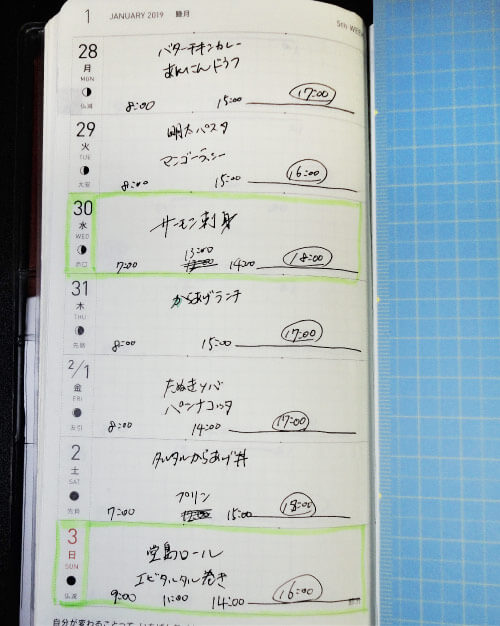 1 JANUARY 2019 睦月
5th WEEK
28 バターチキンカレー
月 あんにんドウフ
MON
仏滅 8:00 15:00 17:00
29 明太パスタ
火 マンゴーラッシー
TUE
大安 8:00 15:00 16:00
30 サーモン刺身
水
WED 13:00
赤口 7:00 14:00 18:00
31 からあげランチ
木
THU
先勝 8:00 15:00 17:00
2/1 たぬきソバ
金 パンナコッタ
FRI
友引 8:00 14:00 17:00
2 タルタルからあげ丼
土
SAT プリン
先負 7:00 15:00 18:00
3 堂島ロール
日 エビタルタル巻き
SUN
仏滅 9:00 11:00 14:00 16:00
自分が変わることって、